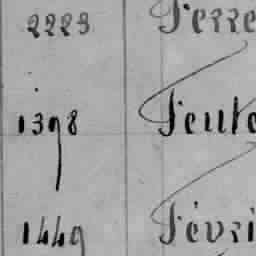 2223 Ferre
1398 Feute
1449 Févri